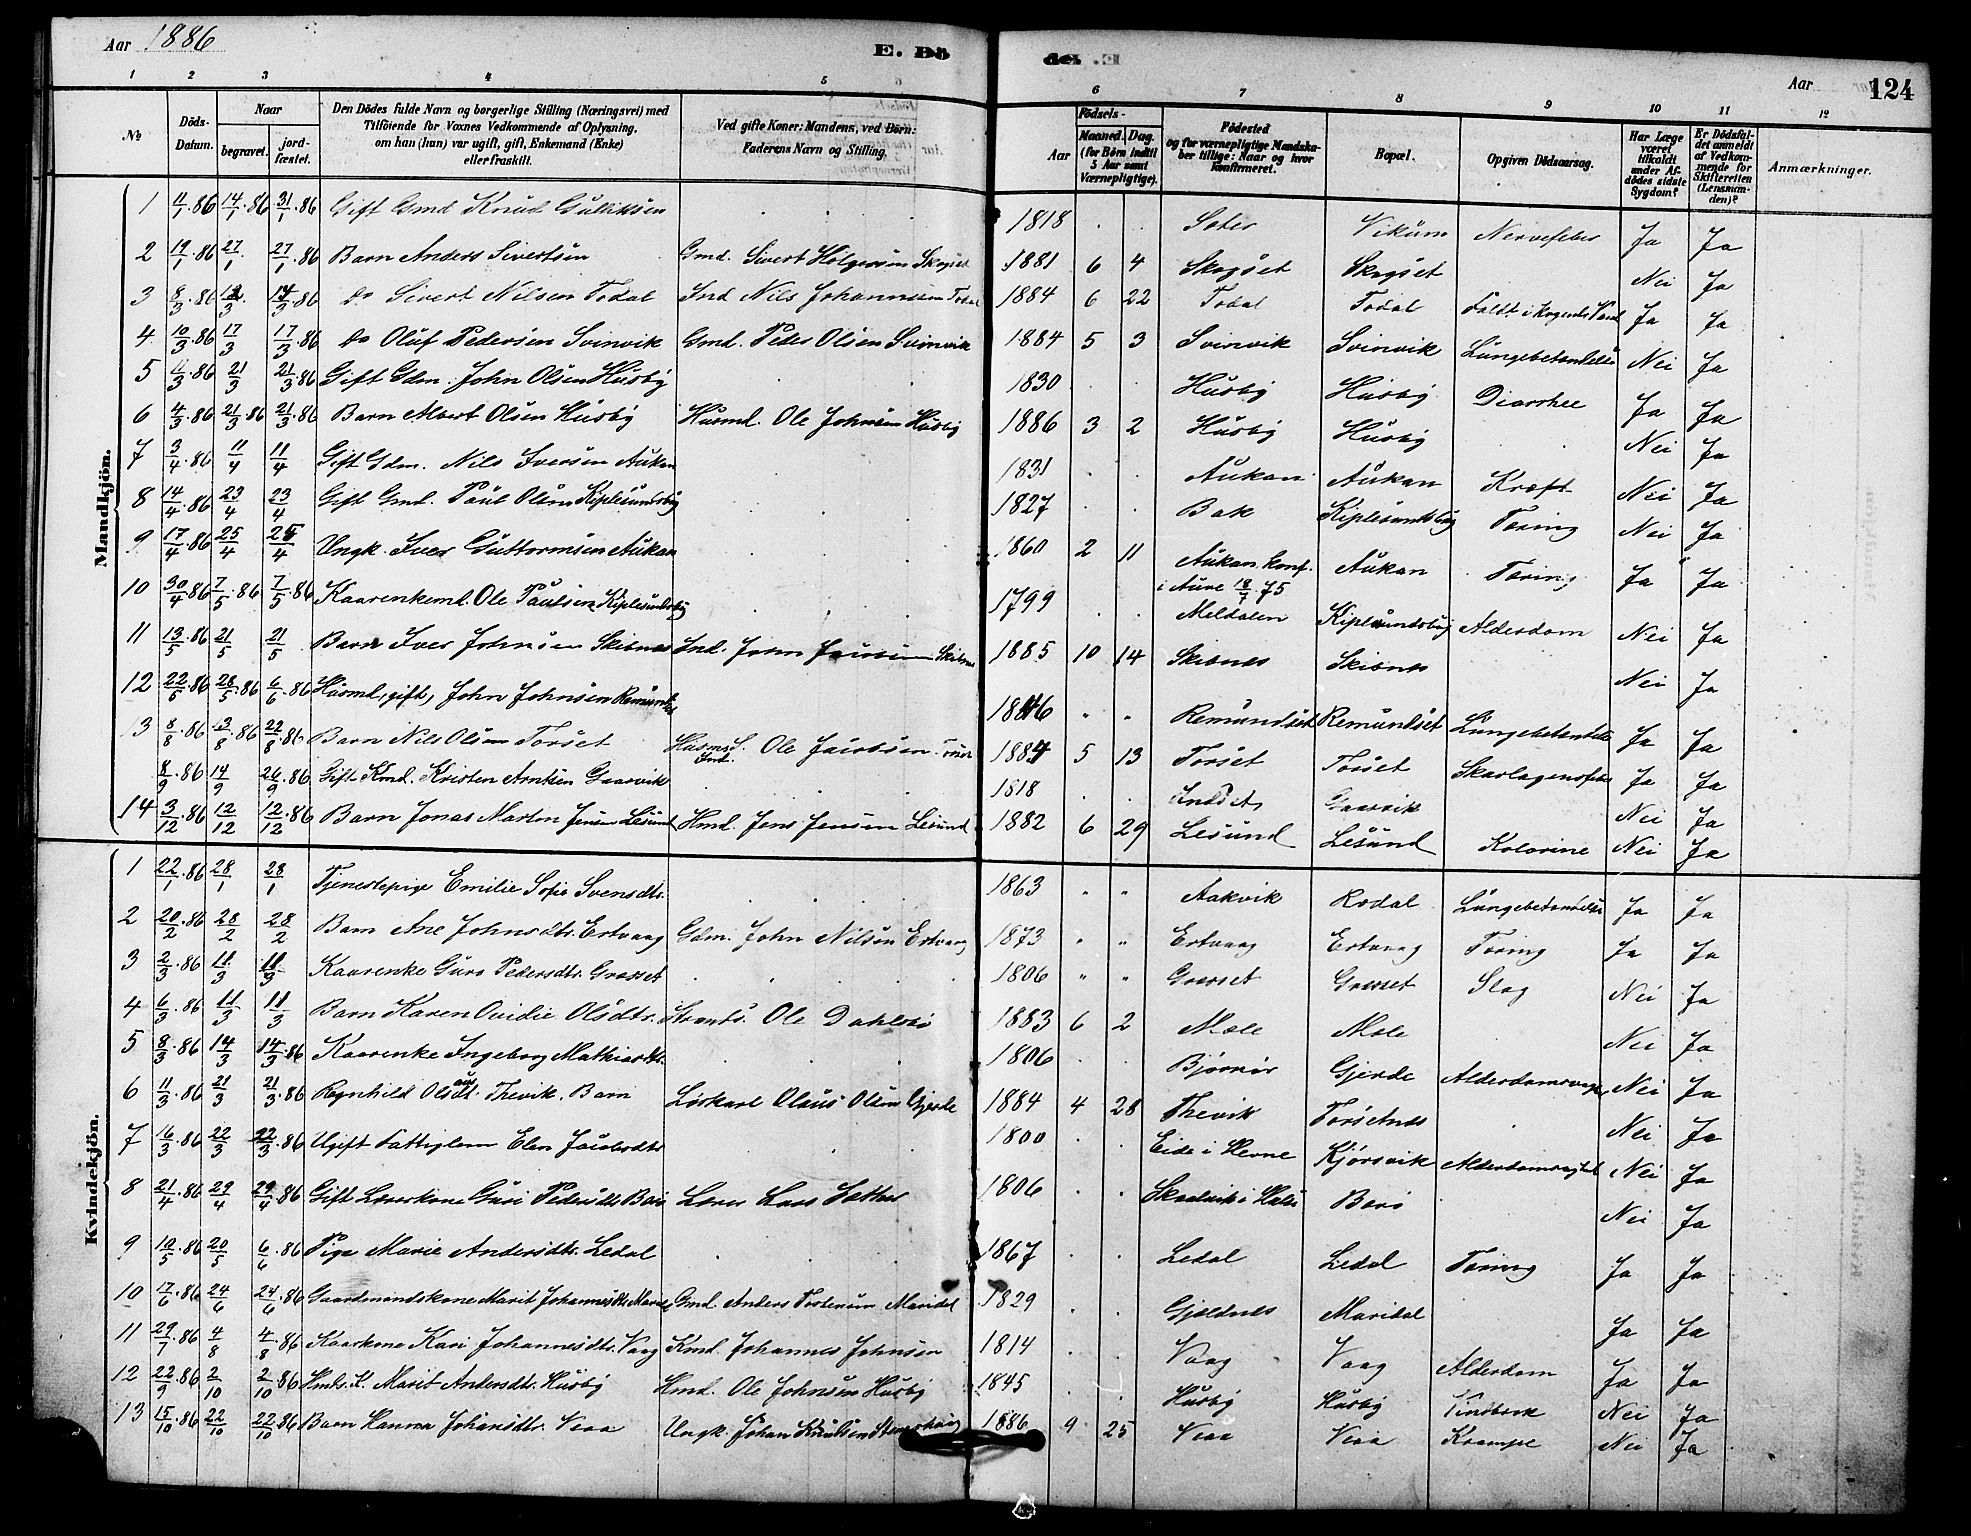 Aar 1886
E. Dö
de. E
Aar
124
1 2 3 4 5 6 7 8 9 10 11 12
№
Döds-Datum.
Naar
begravet. jord-fæstet.
Den Dödes fulde Navn og borgerlige Stilling (Næringsvei) med Tilföiende for Voxnes Vedkommende af Oplysning, om han (hun) var ugift, gift, Enkemand (Enke) eller fraskilt.
Ved gifte Koner: Mandens, ved Börn: Faderens Navn og Stilling.
Födsels-
Aar
Maaned. Dag.
(for Börn indtil 5 Aar samt Værnepligtige).
Födested og for værnepligtige Mandskaber tillige: Naar og hvor Konfirmeret.
Bopæl.
Opgiven Dödsaarsag.
Har Læge været tilkaldt under Afdödes sidste Sygdom?
Er Dödsfaldet anmeldt af Vedkommende for Skifteretten (Lensmanden)?
Anmærkninger.
Mandkjön.
1 11/1.86 14/1.86 31/1.86 Gift Gmd Knud Gulliksen 1818 Vikum Nervefeber Ja Ja
2 19/1.86 27/1. 27/1.86 Barn Anders Sivertsen Gmd. Sivert Holgersen Skogset 1881 6 4 Skogset Skogset Nei Ja
3 8/3.86 14/3.86 do Sivert Nilsen Todal Ind Nils Johannesen Todal 1884 6 22 Todal Todal Faldt i kogende Vand Ja Ja
4 10/3.86 17/3 17/3.86 do Oluf Pedersen Svinvik Gmd. Peder Olsen Svinvik 1884 5 3 Svinvik Svinvik Lungebetændelse Nei Ja
5 11/3.86 21/3 21/3.86 Gift Gdm. John Olsen Husby 1830 Husby Husby Diarrhee Ja Ja
6 4/3.86 21/3.86 21/3.86 Barn Albert Olsen Husby Husmd. Ole Johnsen Husby 1886 3 2 Husby Husby Nei Ja
7 3/4.86 11/4 11/4 Gift Gdm. Nils Iversen Aukan 1831 Aukan Aukan Kræft Nei Ja
8 14/4.86 23/4 23/4 Gift Gmd. Paul Olsen Kiplesundsbug 1827 Bak Kiplesundsbug Tæring Nei Ja
9 17/4.86 25/4 25/4 Ungk. Iver Guttormsen Aukan 1860 2 11 Aukan. Konf. i Aure 18/7 75 Aukan Tæring Ja Ja
10 30/4.86 7/5.86 7/5.86 Kaarenkemd. Ole Paulsen Kiplesundsbug 1799 Meldalen Kiplesundsbug Alderdom Nei Ja
11 13/5.86 21/5 21/5 Barn Iver Johnsen Skibnes Ind. John Skibnes 1885 10 14 Skibnes Skibnes Nei Ja
12 22/5.86 28/5.86 6/6.86 Husmd, gift, John Johnsen Remundset Remundset Remundset Lungebetændelse Ja Ja
13 8/8.86 13/8.86 22/8.86 Barn Nils Olsen Torset Husmd. Ind. Ole Jacobsen Torset 1884 5 13 Torset Torset Skarlagensfeber Ja Ja
8/9.86 14/9 26/9.86 Gift Kmd. Kristen Arntsen Gaasvik 1818 Gaasvik Nei Ja
14 3/12.86 12/12 12/12.86 Barn Jonas Martin Jensen Lesund Hmd. Jens Jensen Lesund 1882 6 29 Lesund Lesund Kolorine Nei Ja
Kvindekjön.
1 22/1.86 28/1 28/1 Tjenestepige Emilie Sofie Svensdtr. 1863 " " Aakvik Rodal Lungebetændelse Ja Ja
2 20/2.86 28/2 28/2 Barn Ane Johnsdtr. Ertvaag Gdm. John Nilsen Ertvaag 1873 " " Ertvaag Ertvaag Tæring Ja Ja
3 2/3.86 11/3 11/3 Kaarenke Guro Pedersdtr. Grosset 1806 " " Grosset Grosset Slag Nei Ja
4 6/3.86 11/3 11/3 Barn Karen Ovidie Olsdtr. Strands. Ole Dahlsbø 1883 6 2 Mole Mole Nei Ja
5 8/3.86 14/3 14/3.86 Kaarenke Ingeborg Mathiasdtr. 1806 Bjørnør Gjerde Nei Ja
6 11/3.86 21/3 21/3.86 Ragnhild Olausdtr. Thevik. Barn Løskarl Olaus Olsen Gjerde 1884 4 28 Thevik Torsetnes Nei Ja
7 16/3.86 22/3 22/3.86 Ugift Fattiglem Elen Jacobsdtr 1800 Eide i Hevne Kjørsvik Alderdomssvaghed Nei Ja
8 21/4.86 29/4 29/4.86 Gift Lærerkone Guri Pedersdtr. Bøvø Lærer Lars Sæther 1806 Nei Ja
9 10/5.86 20/5 6/6.86 Pige Marie Andersdtr. Ledal 1867 Ledal Ledal Tæring Ja Ja
10 17/6.86 24/6 24/6.86 Gaardmandskone Marit Johannesdtr. Maridal Gmd. Anders Torstensen Maridal 1829 Gjeldnes Maridal Ja Ja
11 29/7.86 4/8 4/8.86 Kaarkone Kari Johannesdtr. Vaag Kmd. Johannes Johnsen 1814 Vaag Vaag Alderdom Ja Ja
12 22/9.86 2/10 2/10.86 Hmds. K. Marit Andersdtr. Husby Hmd. Ole Johnsen Husby 1845 Husby Husby Nei Ja
13 15/10.86 22/10 22/10.86 Barn Hanna Johansdtr. Veaa Ungk. Johan Knudsen 1886 9 25 Veaa Veaa Krampe Nei Ja